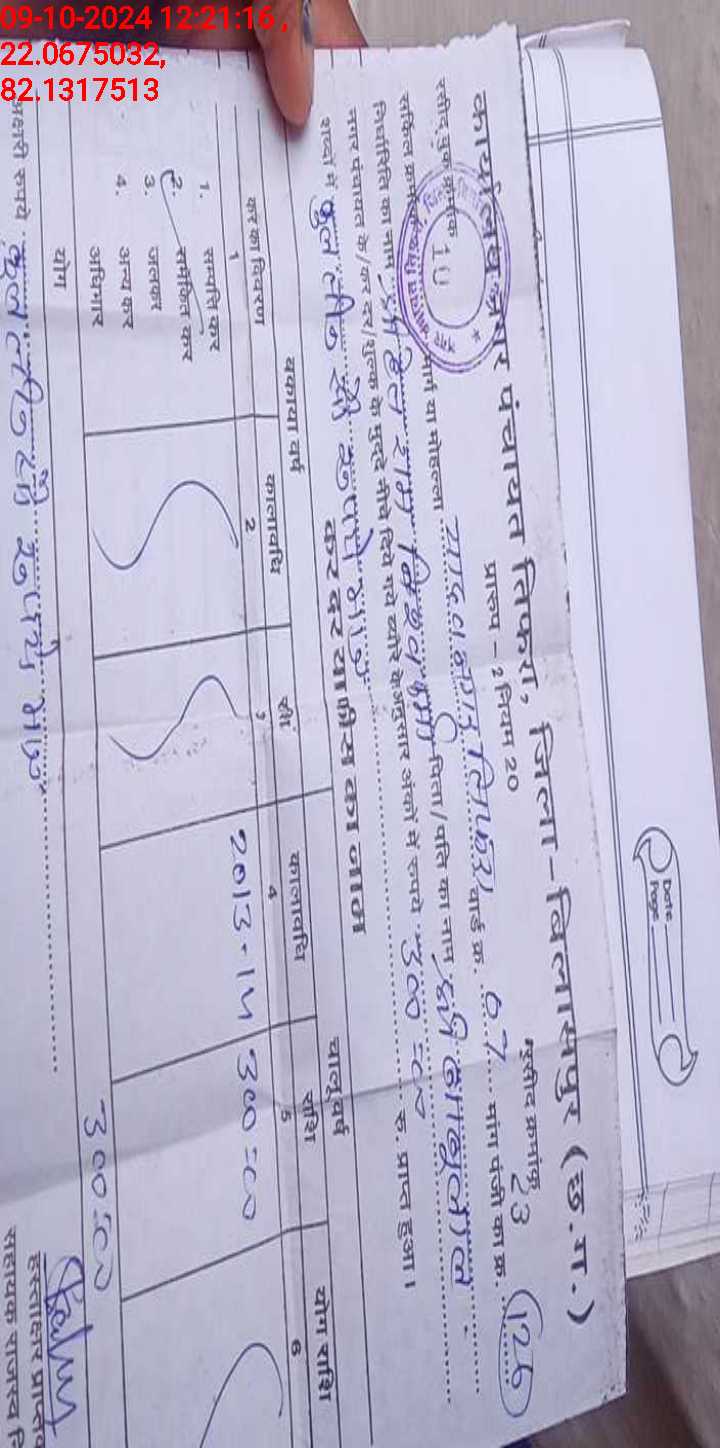 09-10-2024 12:21:16,
22.0675032,
82.1317513
Date.
Page.
कार्यालय नगर पंचायत तिफरा, जिला-बिलासपुर (छ.ग.)
प्रारूप - 2 नियम 20
रसीद बुक क्रमांक 10 रसीद क्रमांक 23
मार्ग या मोहल्ला वार्ड क्र. 07 मांग पंजी का क्र. 126
निर्धारिति का नाम पिता/पति का नाम
नगर पंचायत के/कर दर/शुल्क के मुद्दे नीचे दिये गये ब्यौरे के अनुसार अंकों में रुपये 300=00
शब्दों में कुल तीन सौ रुपये मात्र रु. प्राप्त हुआ।
कर दर या फीस का नाम
बकाया वर्ष चालू वर्ष
कर का विवरण कालावधि कालावधि राशि योग राशि
1 2 3 4 5 6
1. सम्पत्ति कर 2013-14 300=00
2. समेकित कर
3. जलकर
4. अन्य कर
अधिभार
योग 300=00
अक्षरी रुपये कुल तीन सौ रुपये मात्र
हस्ताक्षर
सहायक राजस्व